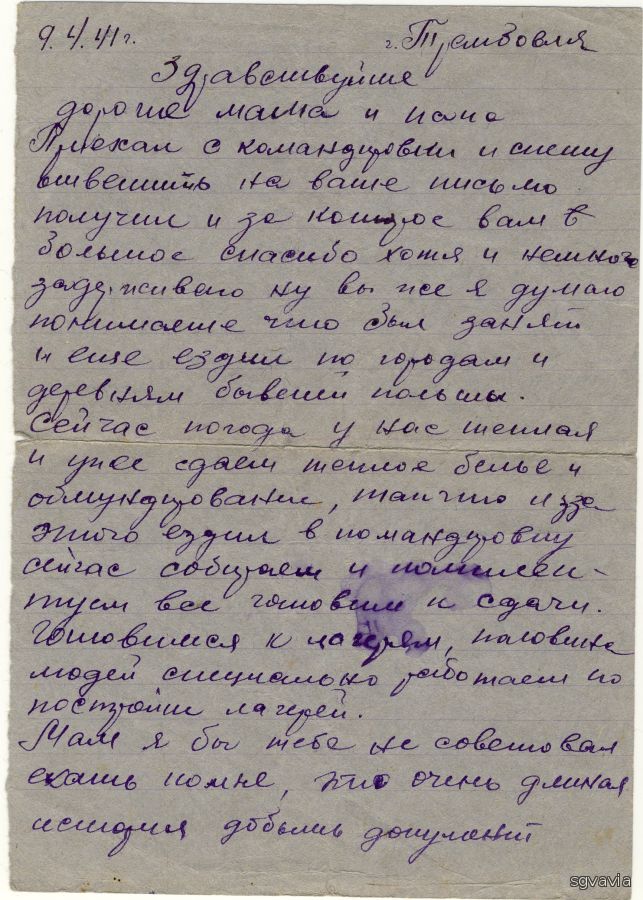 9.4.41 г. г. Трембовля
Здравствуйте
дорогие мама и папа
Приехал с командировки и спешу
ответить на ваше письмо
получил и за которое вам
большое спасибо хотя и немного
задерживаю ну вы же я думаю
понимаете что был занят
и еще ездил по городам и
деревням бывшей польшы.
Сейчас погода у нас теплая
и уже сдаем теплое белье и
обмундирование, так что изза
этого ездил в командировку
сейчас собираем и комплек-
туем все готовим к сдачи.
Готовимся к лагерям, половина
людей специально работает по
постройки лагерей.
Мам я бы тебе не советовал
ехать комне, это очень длиная
история добыть документ
sgvavia